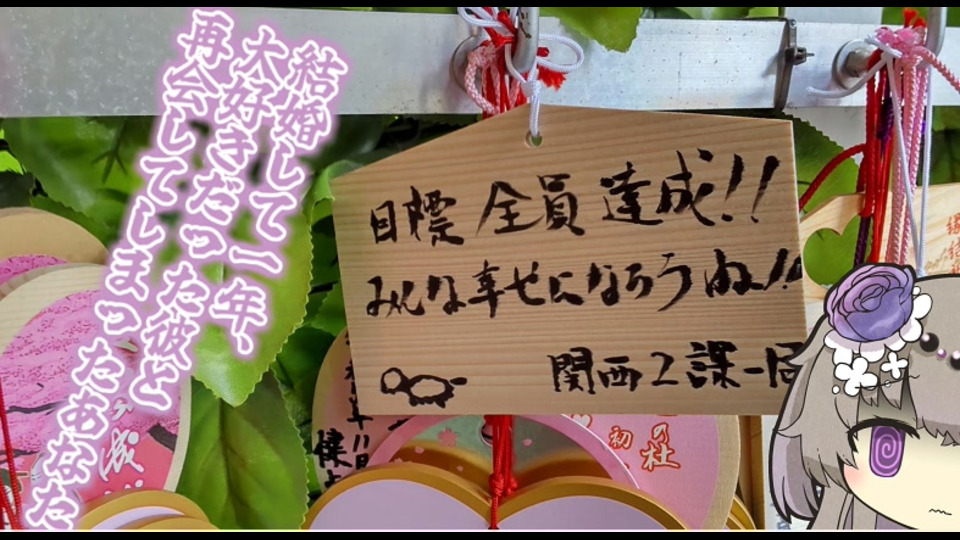 結婚して一年、
大好きだった彼と
再会してしまったあなた
目標 全員 達成!!
みんな幸せになろうね!!
関西2課一同
の
初杜
健